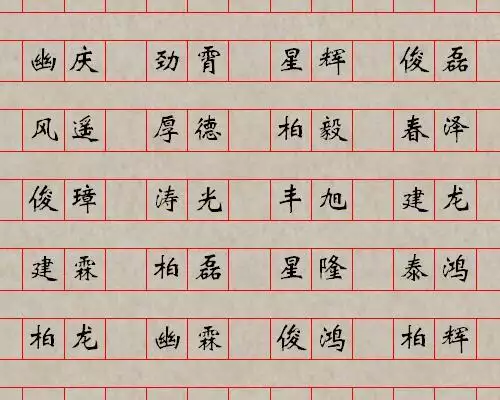 幽庆 劲霄 星辉 俊磊
风遥 厚德 柏毅 春泽
俊璋 涛光 丰旭 建龙
建霖 柏磊 星隆 泰鸿
柏龙 幽霖 俊鸿 柏辉